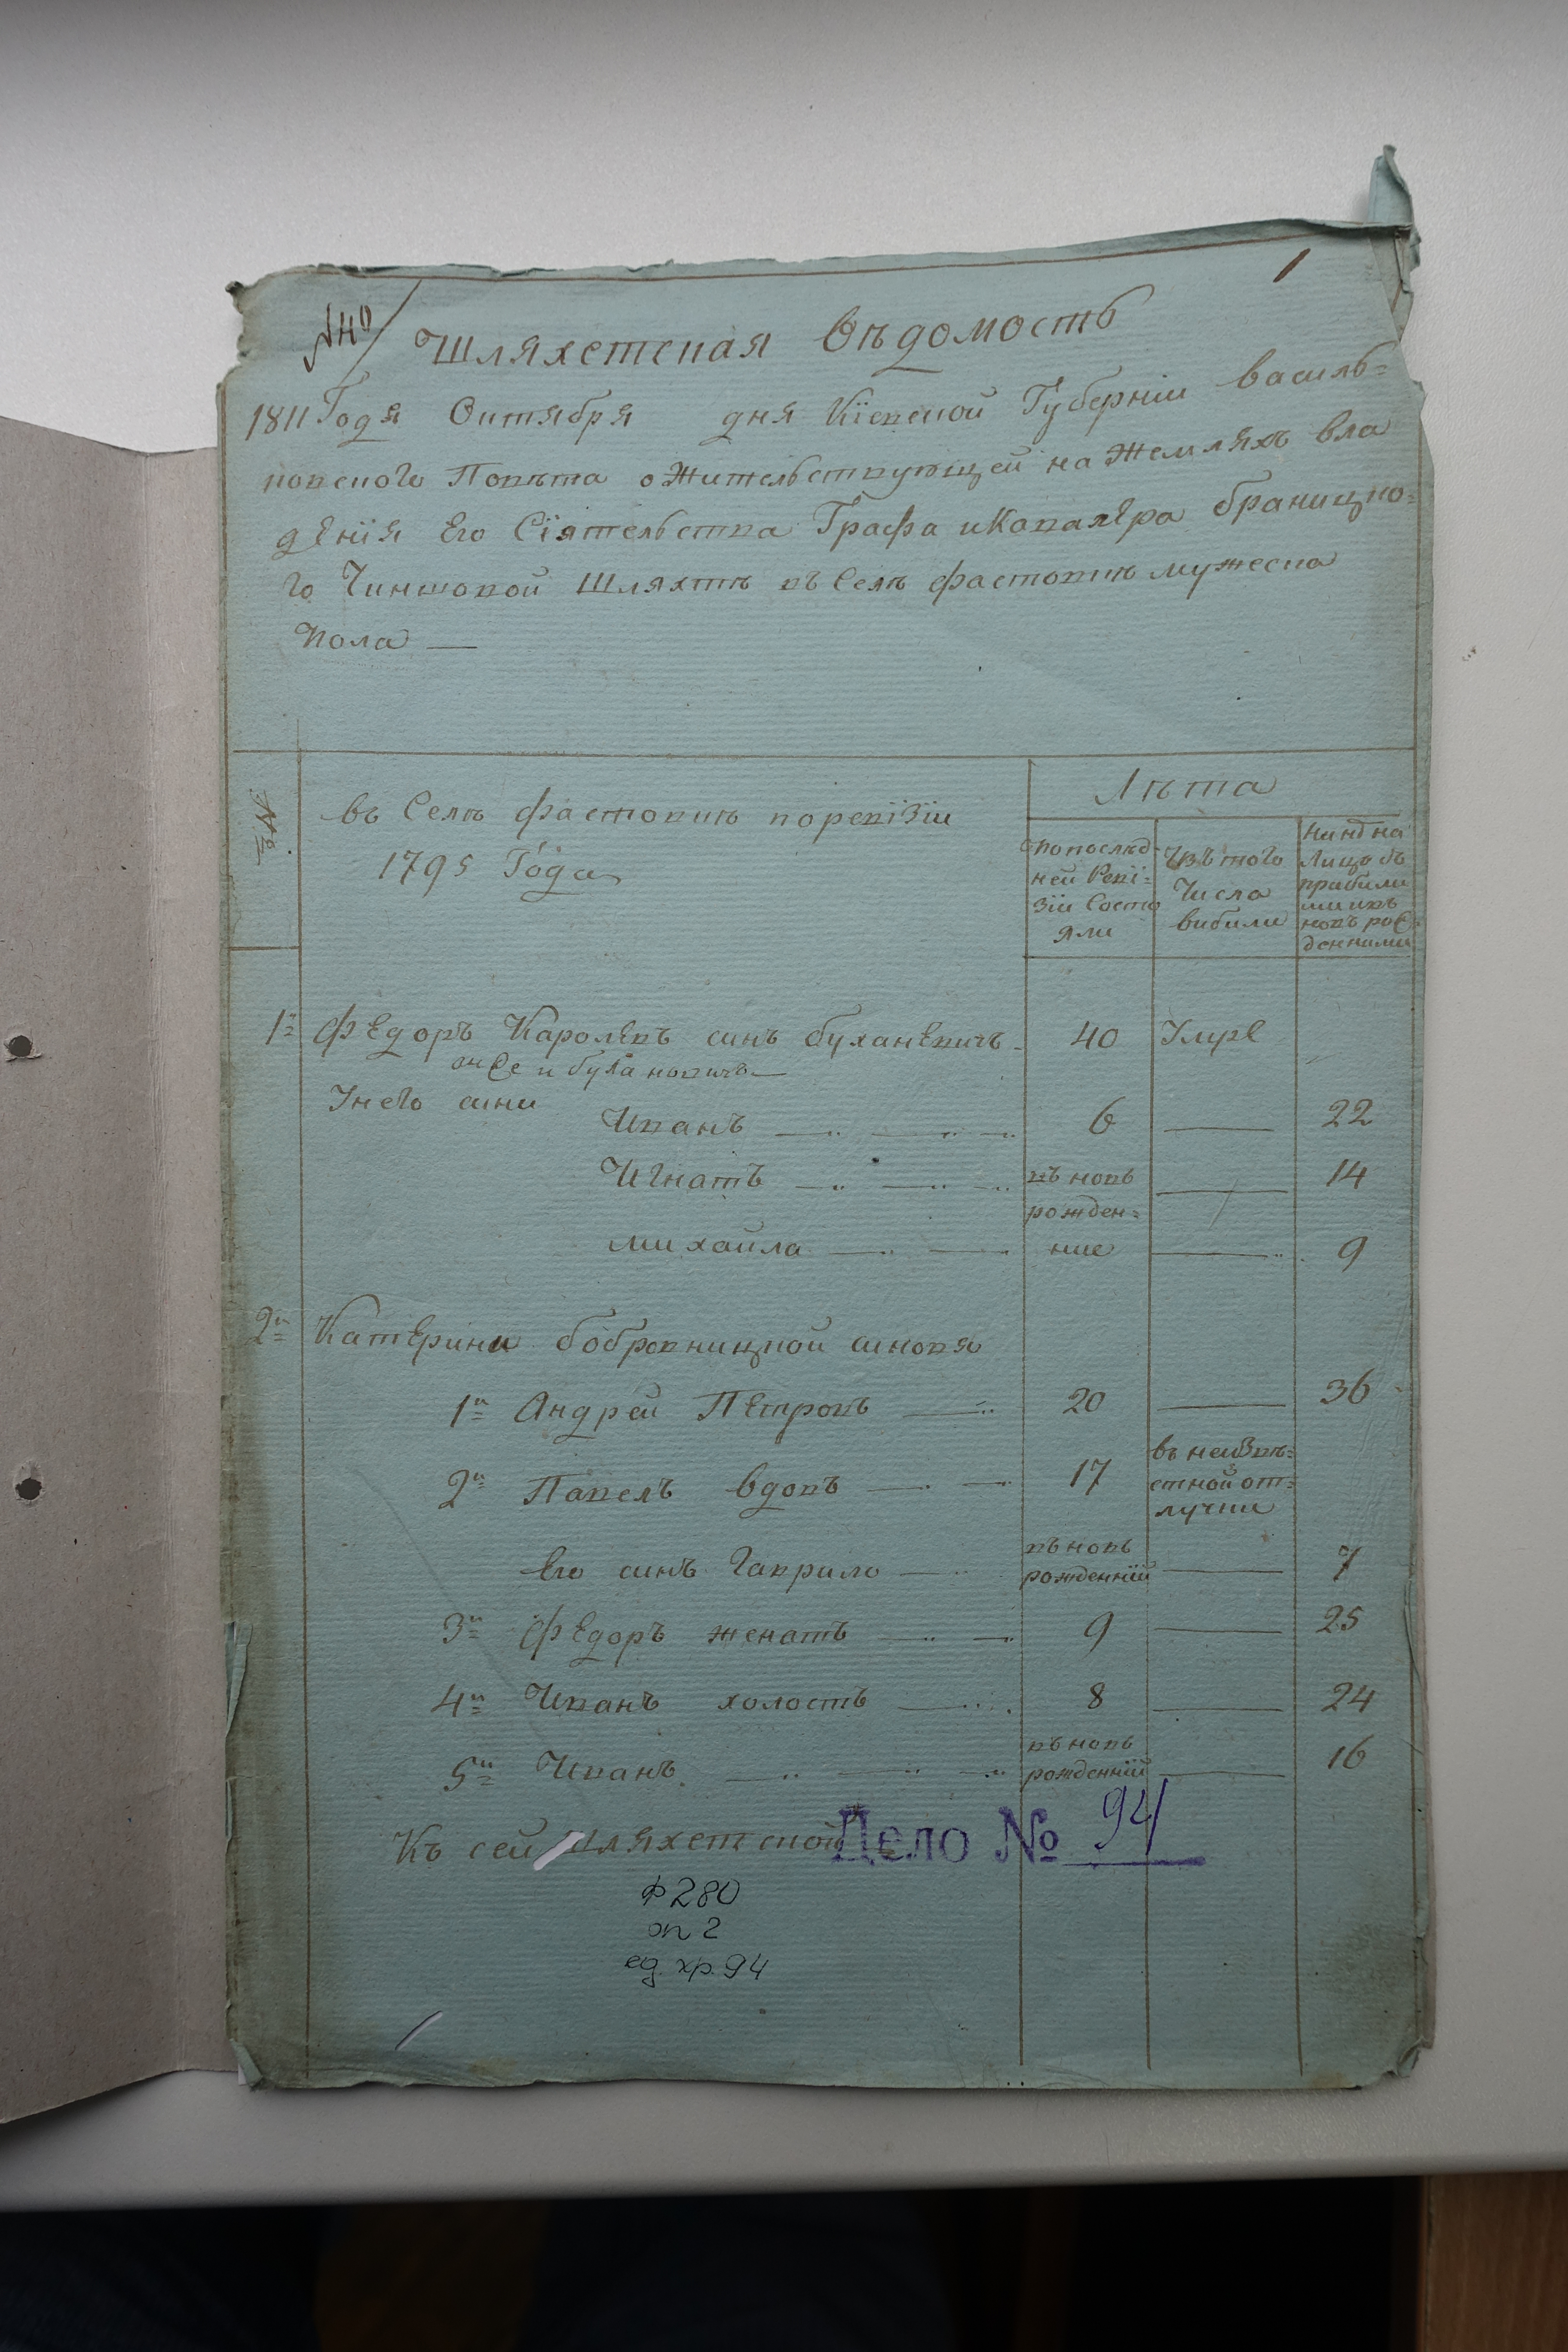 1
№ 40
Шляхетская Вѣдомость
1811 Года Октября дня Кіевской Губерніи Василь=
ковского Повѣта о Жительствующей на Земляхъ Вла
дѣнія Его Сіятельства Графа и Кавалера Браницко=
го Чиншовой Шляхтѣ въ Селѣ Фастовкѣ мужеска
Пола —
№
Въ Селѣ Фастовкѣ по ревізіи
1795 Года
Лѣта
По послѣд-
ней Реві=
зіи Состо
яли
Изъ того
Числа
выбыли
Нинѣ на
Лицо съ
прибыли
ми и въ
новь рож=
денними
1й Федоръ Каролевъ синъ Буханевичъ 40 Умре
онже и Булановичъ —
У него сини
Иванъ 6 — 22
Игнатъ въ новь — 14
рожден=
Михайла ние — 9
2й Катерини Бобровницкой синовя
1й Андрей Петровъ 20 — 36
2й Павелъ вдовъ 17 въ неизвѣ=
стной от=
лучки
Его синъ Гаврило въ новь
рожденній — 7
3й Федоръ женатъ 9 — 25
4й Иванъ холостъ 8 — 24
5й Иванъ въ новь
рожденній — 16
Къ сей Шляхетской
Дело № 94
ф 280
оп 2
ед. хр. 94